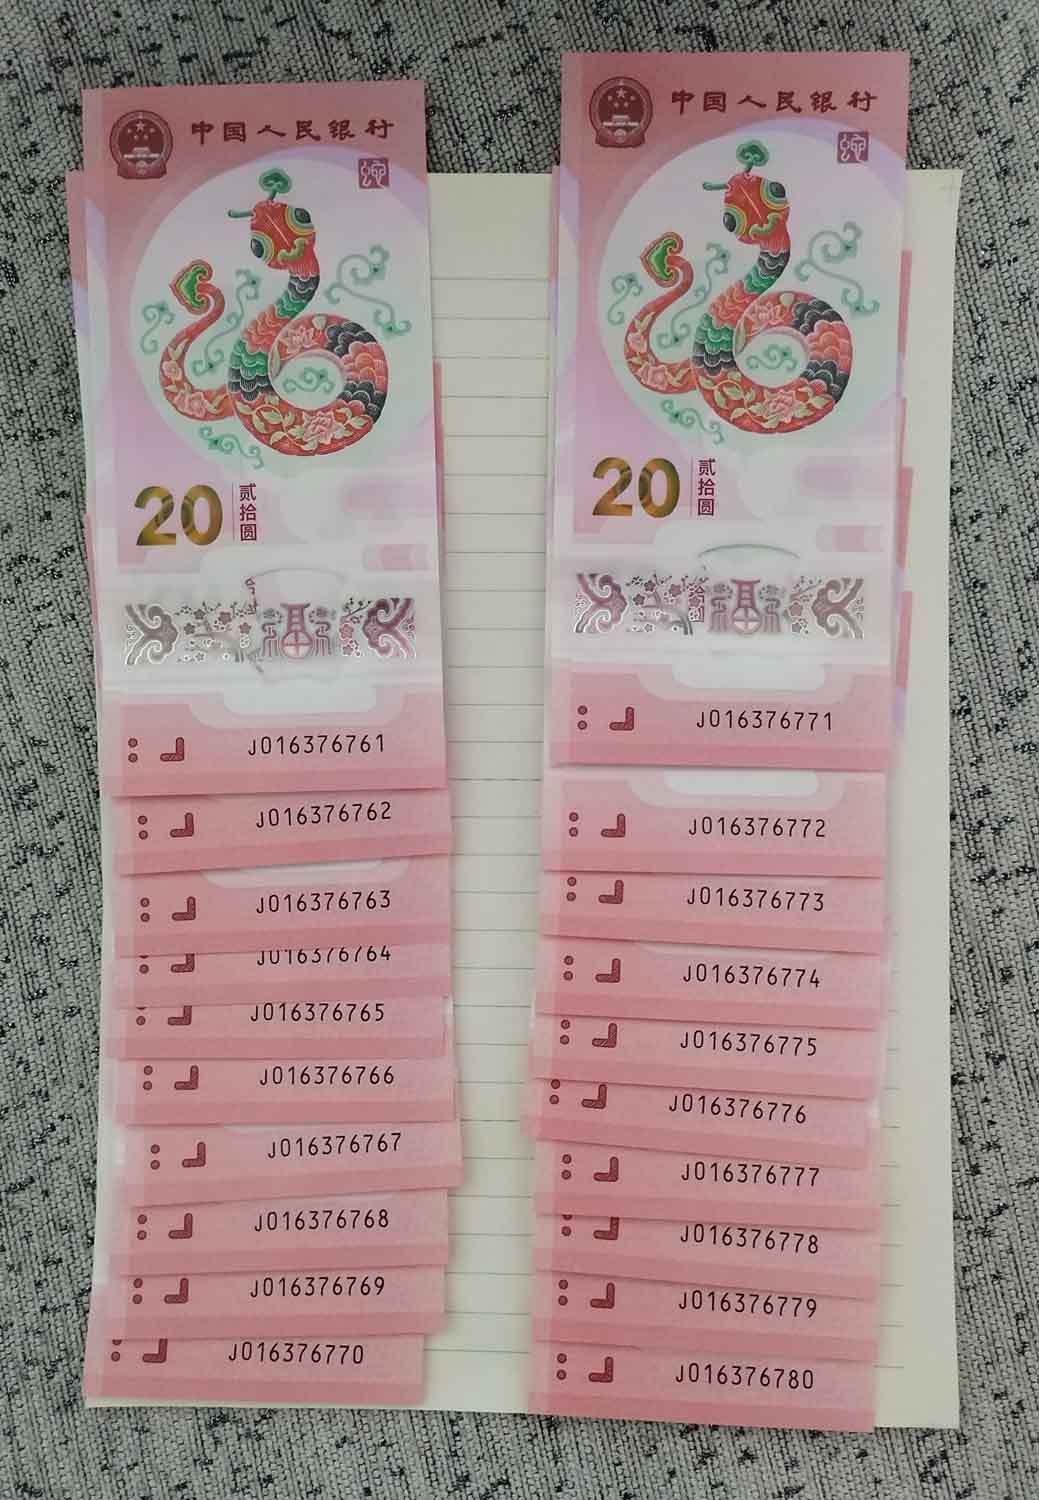 中国人民银行
20
贰拾圆
J016376761
J016376762
J016376763
J016376764
J016376765
J016376766
J016376767
J016376768
J016376769
J016376770
中国人民银行
20
贰拾圆
J016376771
J016376772
J016376773
J016376774
J016376775
J016376776
J016376777
J016376778
J016376779
J016376780